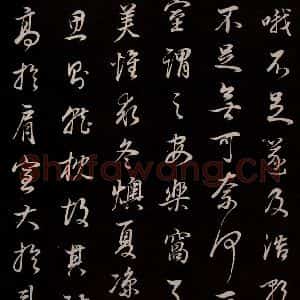 哦不足遂及浩歌
不足無可奈何
室謂之安樂窩不
美惟求冬燠夏涼
思則就枕故其
高於肩室大於
Shufawang.CN